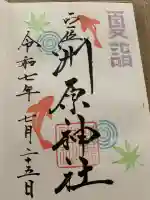 夏詣
正一位
川原神社
令和七年七月二十五日